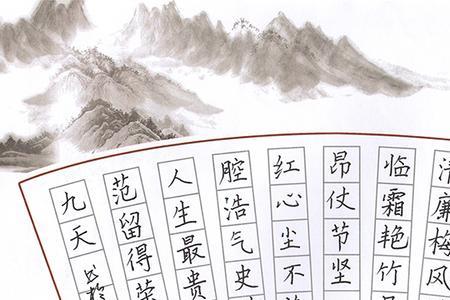 清廉梅风
临霜艳竹
昂仗节坚
红心尘不
腔浩气史
人生最贵
范留得
九天